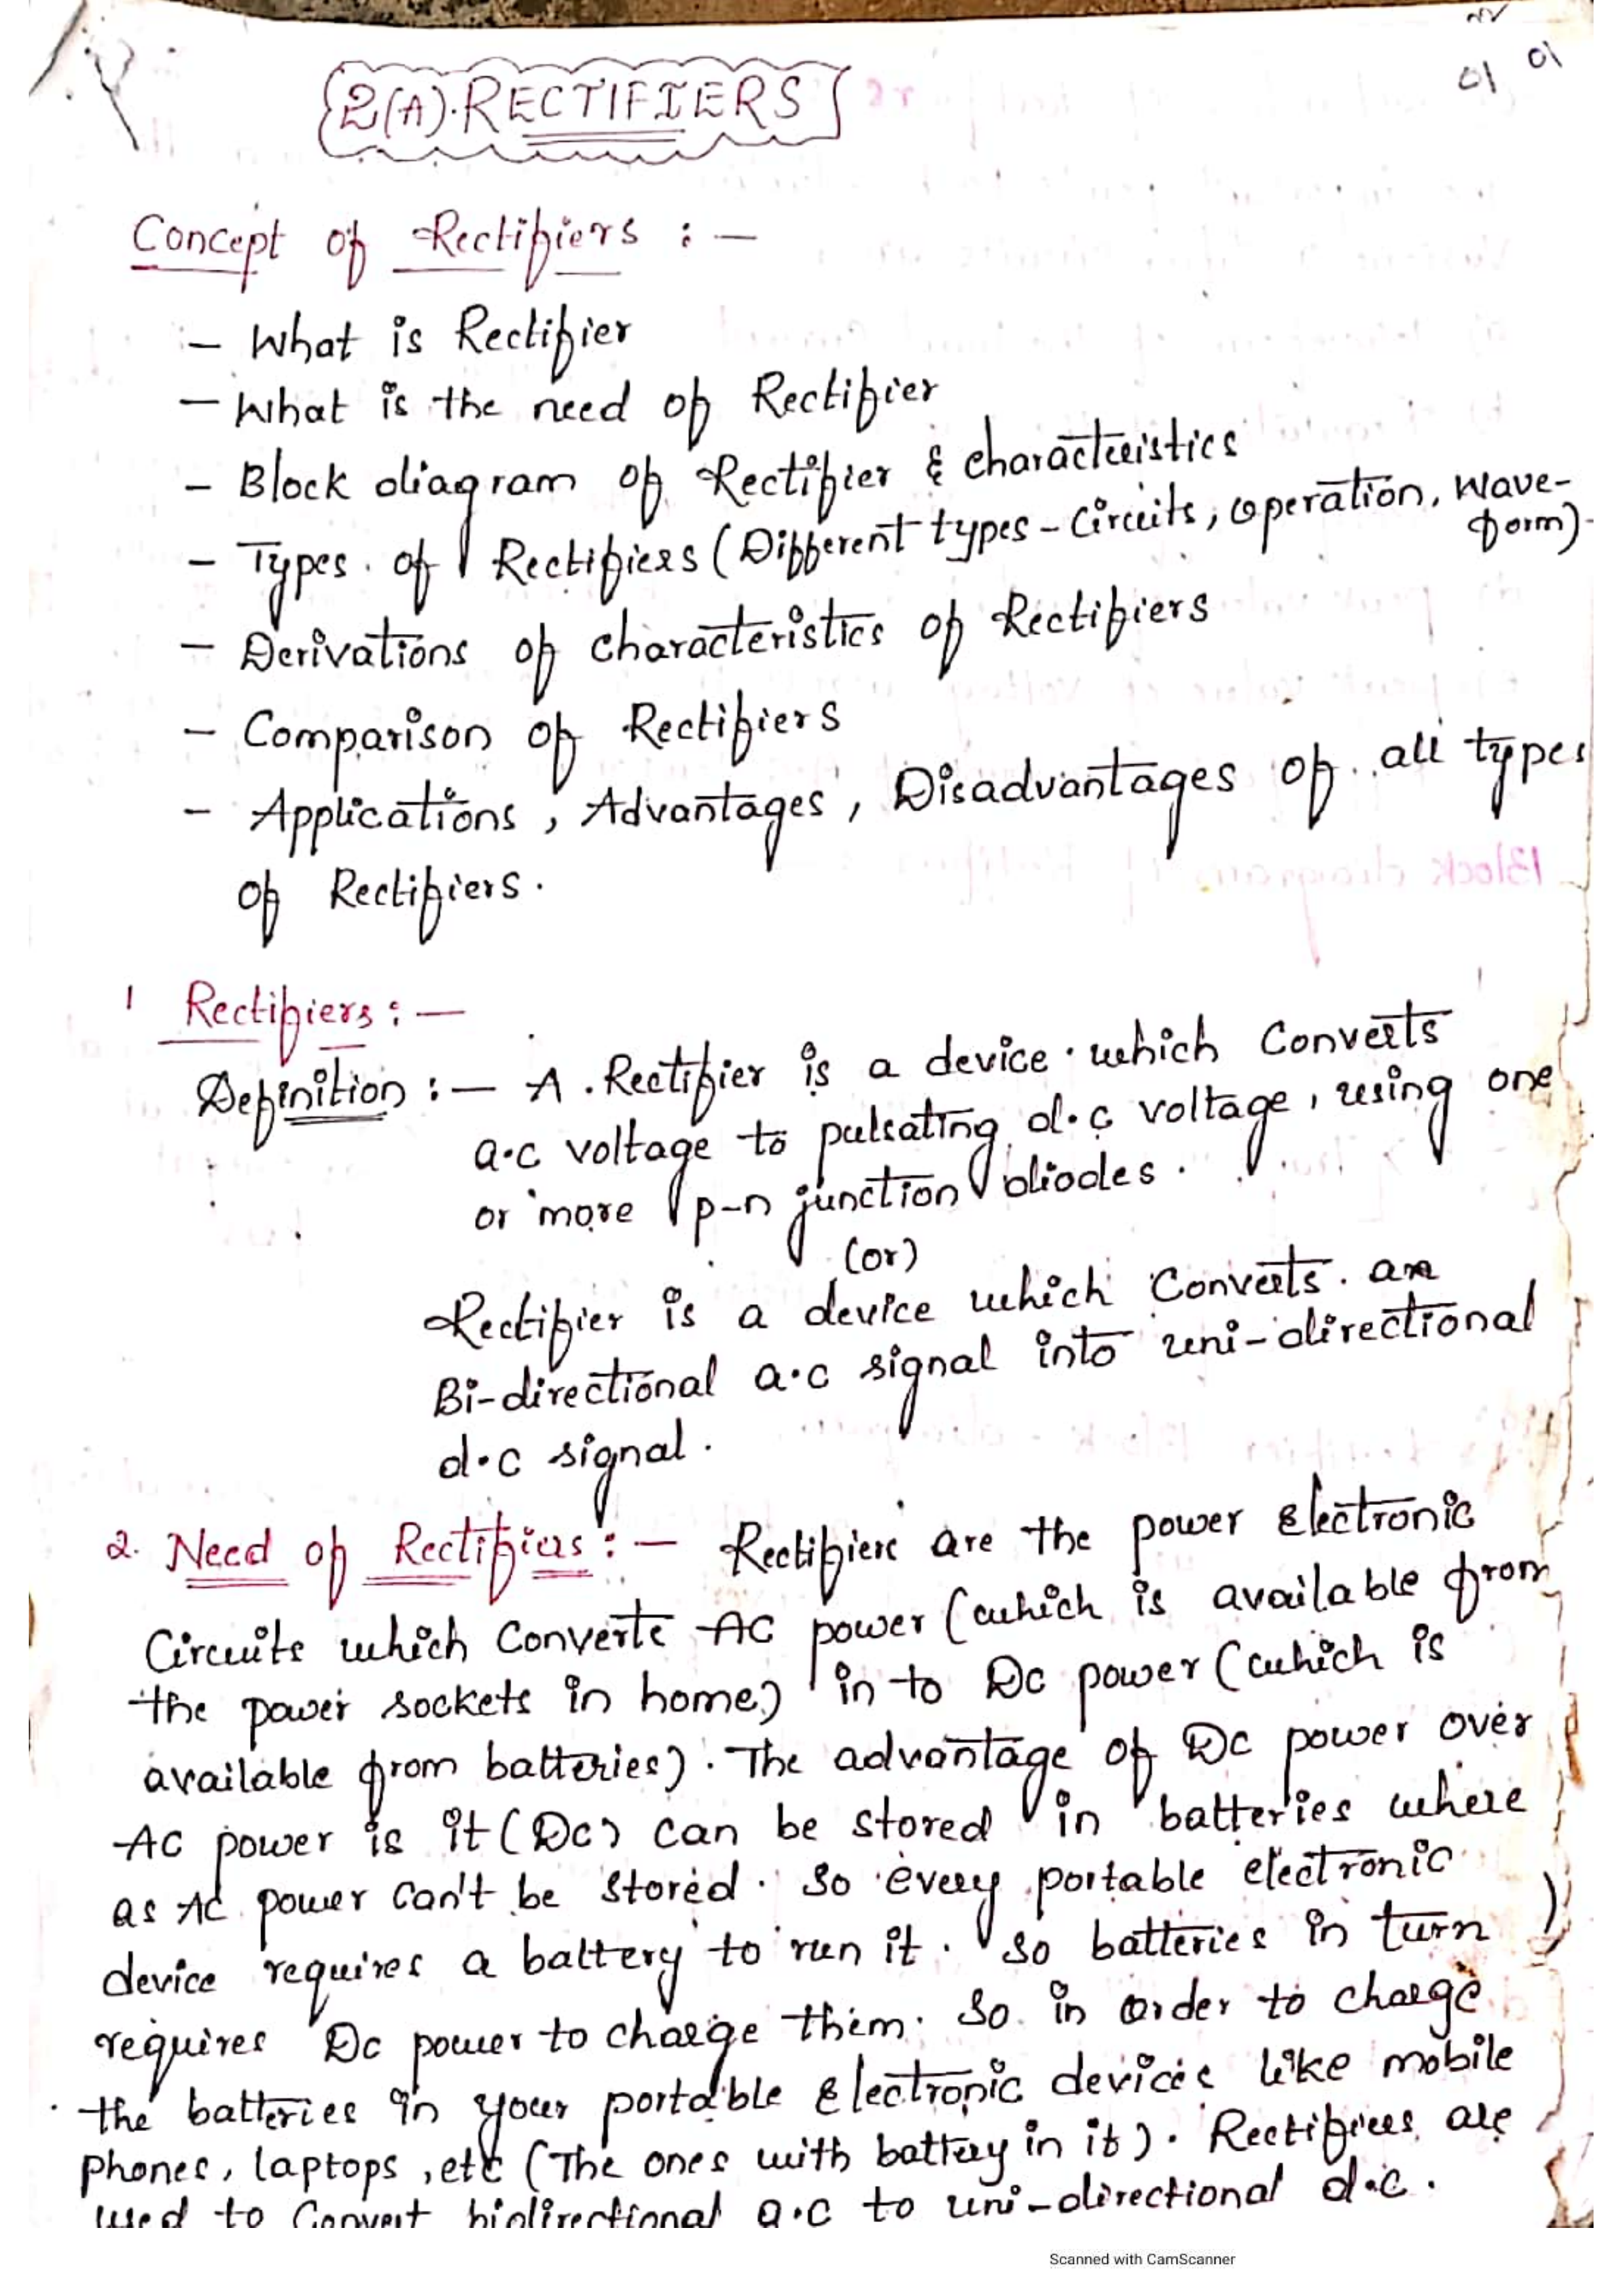 01 01
2(A). RECTIFIERS
Concept of Rectifiers : -
- What is Rectifier
- What is the need of Rectifier
- Block diagram of Rectifier & characteristics
- Types of Rectifiers (Different types - Circuits, operation, Wave-
form).
- Derivations of characteristics of Rectifiers
- Comparison of Rectifiers
- Applications, Advantages, Disadvantages of all types
of Rectifiers.
1 Rectifiers : -
Definition : - A Rectifier is a device which Converts
a.c voltage to pulsating d.c voltage, using one
or more p-n junction diodes.
(or)
Rectifier is a device which Converts an
Bi-directional a.c signal into uni-directional
d.c signal.
2. Need of Rectifiers : - Rectifiers are the power Electronic
Circuits which Converts AC power (which is available from
the power sockets in home) in to DC power (which is
available from batteries). The advantage of DC power over
AC power is it (DC) can be stored in batteries where
as AC power can't be stored. So every portable electronic
device requires a battery to run it. So batteries in turn
requires DC power to charge them. So in order to charge
the batteries in your portable Electronic devices like mobile
phones, laptops, etc (The ones with battery in it). Rectifiers are
used to Convert bidirectional a.c to uni-directional d.c.
Scanned with CamScanner